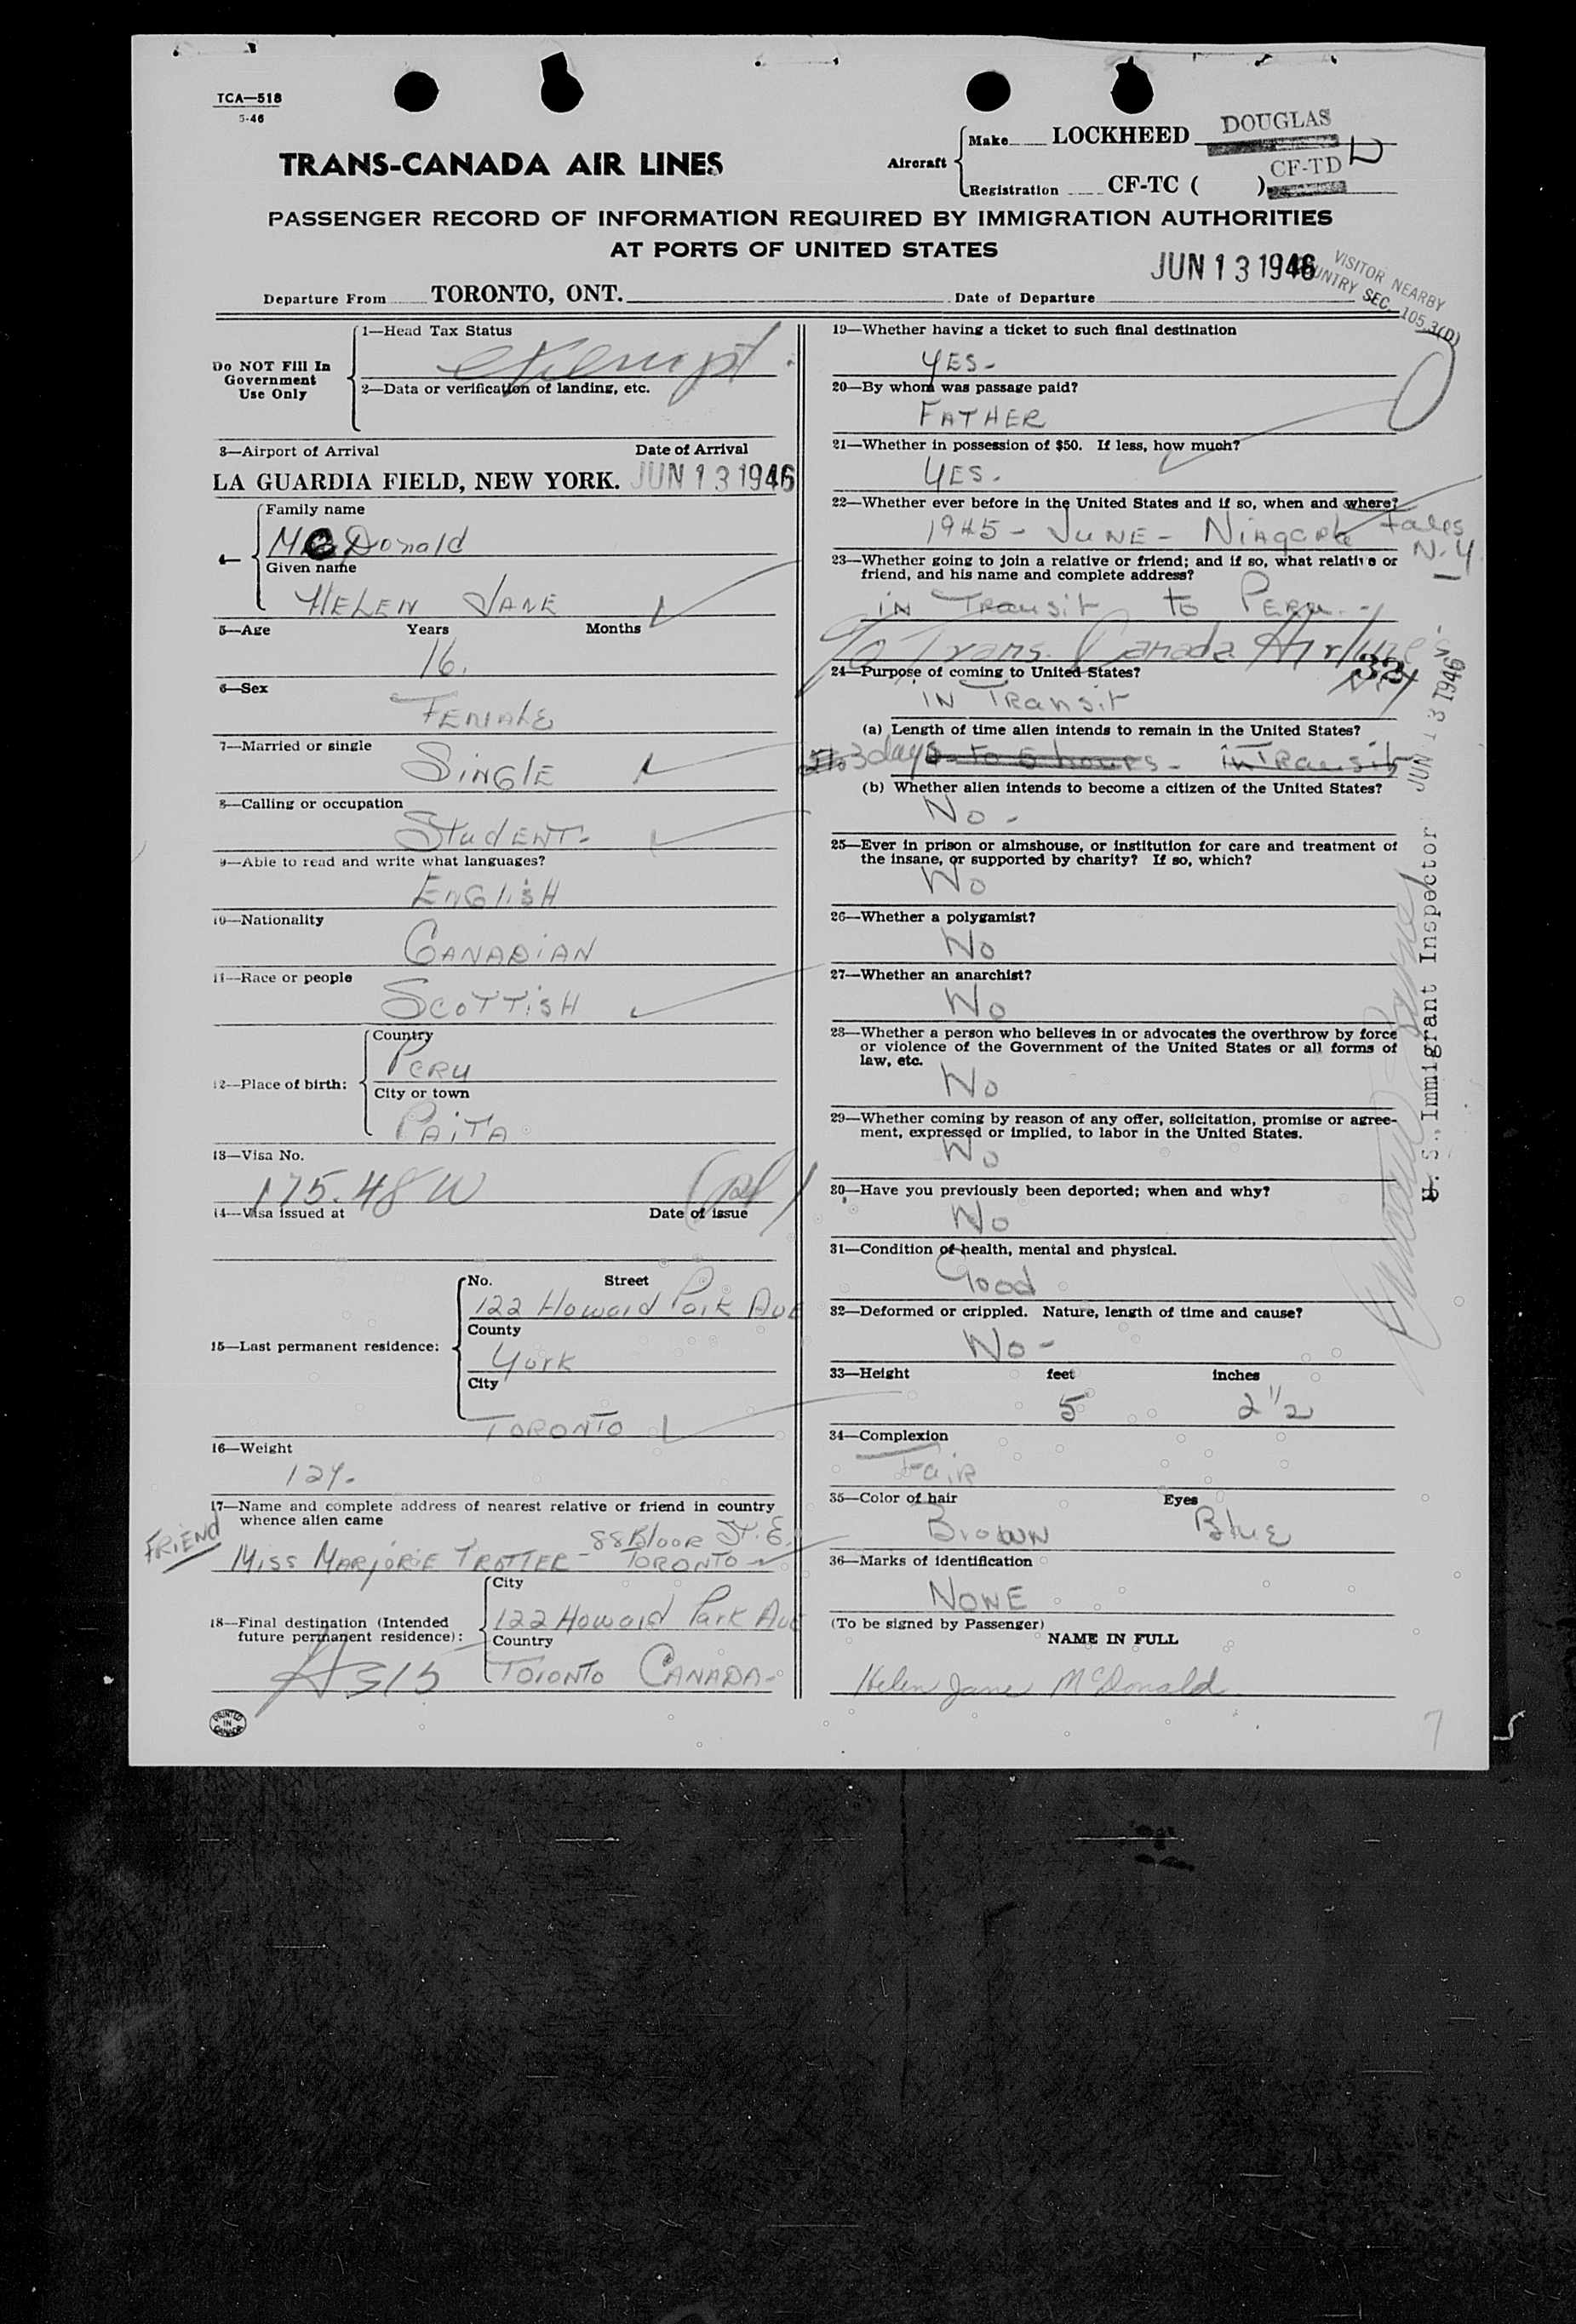 TCA—518
5-46
TRANS-CANADA AIR LINES
Aircraft
Make LOCKHEED DOUGLAS
Registration CF-TC ( ) CF-TD D
PASSENGER RECORD OF INFORMATION REQUIRED BY IMMIGRATION AUTHORITIES
AT PORTS OF UNITED STATES
JUN 13 1946
VISITOR NEARBY
COUNTRY SEC. 105.3(D)
Departure From TORONTO, ONT. Date of Departure
Do NOT Fill In
Government
Use Only
1—Head Tax Status
exempt
2—Data or verification of landing, etc.
3—Airport of Arrival Date of Arrival
LA GUARDIA FIELD, NEW YORK. JUN 13 1946
4—
Family name
McDonald
Given name
HELEN JANE
5—Age Years Months
16.
6—Sex
FEMALE
7—Married or single
SINGLE
8—Calling or occupation
STUDENT-
9—Able to read and write what languages?
ENGLISH
10—Nationality
CANADIAN
11—Race or people
SCOTTISH
12—Place of birth:
Country
PERU
City or town
PAITA
13—Visa No.
175.48 W
14—Visa issued at Date of issue
15—Last permanent residence:
No. Street
122 Howard Park AVE
County
York
City
TORONTO
16—Weight
124.
17—Name and complete address of nearest relative or friend in country
whence alien came
FRIEND
88 Bloor ST. E.
MISS MARJORIE TROTTER - TORONTO
18—Final destination (Intended
future permanent residence):
City
122 Howard Park AVE
Country
TORONTO CANADA-
PRINTED
IN
CANADA
19—Whether having a ticket to such final destination
YES-
20—By whom was passage paid?
FATHER
21—Whether in possession of $50. If less, how much?
YES.
22—Whether ever before in the United States and if so, when and where?
1945 - JUNE - NIAGARA Falls
N.Y.
23—Whether going to join a relative or friend; and if so, what relative or
friend, and his name and complete address?
IN TRANSIT to PERU.-
c/o Trans. Canada Airlines
N.Y
33
24—Purpose of coming to United States?
IN TRANSIT
(a) Length of time alien intends to remain in the United States?
3 days to 5 hours - in TRANSIT
(b) Whether alien intends to become a citizen of the United States?
No -
25—Ever in prison or almshouse, or institution for care and treatment of
the insane, or supported by charity? If so, which?
No
26—Whether a polygamist?
No
27—Whether an anarchist?
No
28—Whether a person who believes in or advocates the overthrow by force
or violence of the Government of the United States or all forms of
law, etc.
No
29—Whether coming by reason of any offer, solicitation, promise or agree-
ment, expressed or implied, to labor in the United States.
No
30—Have you previously been deported; when and why?
No
31—Condition of health, mental and physical.
Good
32—Deformed or crippled. Nature, length of time and cause?
No -
33—Height feet inches
5 2 1/2
34—Complexion
Fair
35—Color of hair Eyes
Brown Blue
36—Marks of identification
NONE
(To be signed by Passenger)
NAME IN FULL
Helen Jane McDonald
7
U. S. Immigrant Inspector
JUN 13 1946